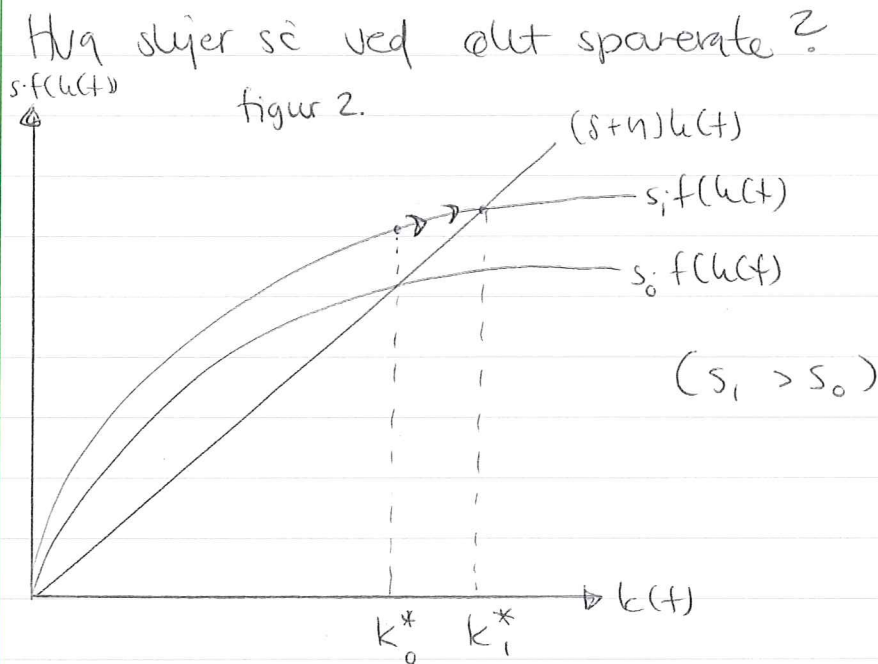 Hva skjer så ved økt sparerate?
s·f(k(t))
figur 2.
(δ+n)k(t)
s₁f(k(t)
s₀f(k(t)
(s₁ > s₀)
k(t)
k₀* k₁*